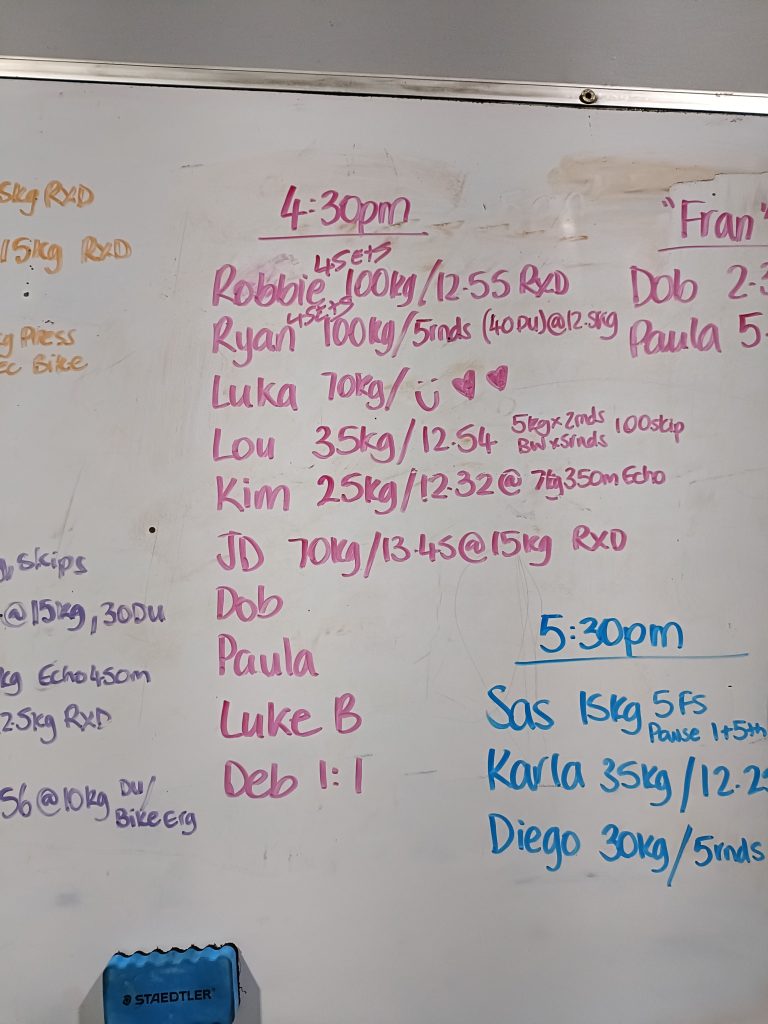 5kg RXD
15kg RXD
kg Press
ec Bike
g, skips
@15kg, 30DU
kg Echo 450m
2.5kg RXD
56@10kg DU/
Bike Erg
4:30pm
4SETS
Robbie 100kg/12.55 RXD
4SETS
Ryan 100kg/5rnds (40DU)@12.5kg
Luka 70kg/
Lou 35kg/12.54 5kgx2rnds 100skip
BWx5rnds
Kim 25kg/12.32@ 7kg 350m Echo
JD 70kg/13.45@15kg RXD
Dob
Paula
Luke B
Deb 1:1
"Fran"
Dob 2.3
Paula 5.
5:30pm
Sas 15kg 5FS
Pause 1+5th
Karla 35kg/12.2
Diego 30kg/5rnds
STAEDTLER